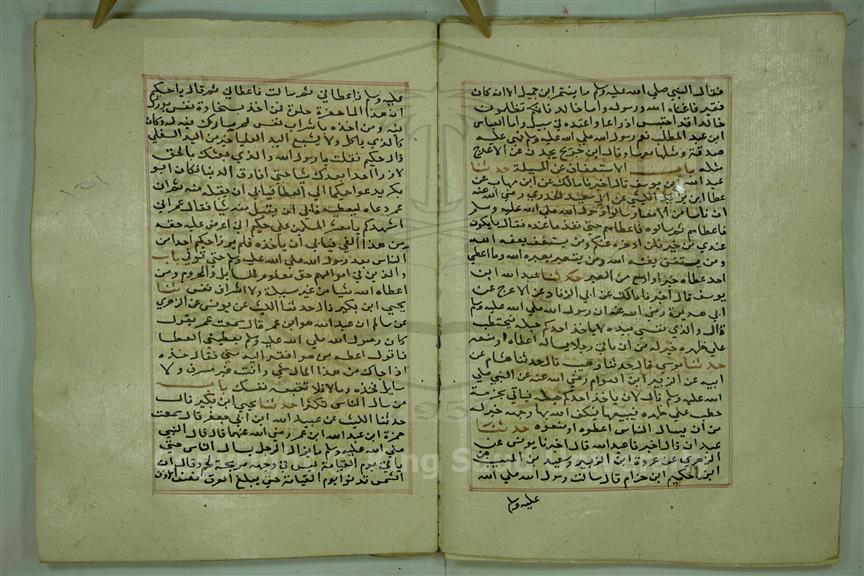 فقال النبي صلي الله عليه وسلم ما ينقم ابن جميل الا انه كان
فقير فاغناه الله ورسوله واما خالد فانكم تظلمون
خالدا قد احتبس ادراعه واعتده في سبيل الله واما العباس
ابن عبد المطلب فعم رسول الله صلي الله عليه وسلم فهي عليه
صدقة ومثلها معها وقال ابن جريج حدثت عن الاعرج
مثله باب الاستعفاف عن المسيلة حدثنا
عبد الله بن يوسف قال اخبرنا مالك عن ابن شهاب عن
عطا ابن يزيد الليثي عن ابي سعيد الخدري رضي الله عنه
ان ناسا من الانصار سالوا رسول الله صلي الله عليه وسلم
فاعطاهم ثم سالوه فاعطاهم حتي نفذ ما عنده فقال ما يكون
عندي من خير فلن ادخره عنكم ومن يستعفف يعفه الله
ومن يستغن يغنه الله ومن يتصبر يصبره الله وما اعطي
احد عطاء خيرا واوسع من الصبر حدثنا عبد الله ابن
يوسف قال اخبرنا مالك عن ابي الزناد عن الاعرج عن
ابي هريرة رضي الله عنه ان رسول الله صلي الله عليه وسلم
قال والذي نفسي بيده لا ياخذ احدكم حبله فيحتطب
علي ظهره خير له من ان ياتي رجلا يساله اعطاه او منعه
حدثنا موسي قال حدثنا وهيب قال حدثنا هشام عن
ابيه عن الزبير ابن العوام رضي الله عنه عن النبي صلي
الله عليه وسلم قال لان ياخذ احدكم حبله فياتي بحزمة
حطب علي ظهره فيبيعها فيكف الله بها وجهه خير له
من ان يسال الناس اعطوه او منعوه حدثنا
عبدان قال اخبرنا عبد الله قال اخبرنا يونس عن
الزهري عن عروة ابن الزبير وسعيد بن المسيب
ان حكيم ابن حزام قال سالت رسول الله صلي الله
عليه وسلم
عليه وسلم فاعطاني ثم سالت فاعطاني ثم قال يا حكيم
ان هذا المال خضرة حلوة فمن اخذه بسخاوة نفس بورك
فيه ومن اخذه باشراف نفس لم يبارك فيه له وكان
كالذي ياكل ولا يشبع اليد العليا خير من اليد السفلي
قال حكيم فقلت يا رسول الله والذي بعثك بالحق
لا ارزا احدا بعدك شيا حتي افارق الدنيا فكان ابو
بكر يدعوا حكيما الي العطا فيابي ان يقبله منه ثم ان
عمر دعاه ليعطيه فابي ان يقبل منه شيا فقال عمر اني
اشهدكم يا معشر المسلمين علي حكيم اني اعرض عليه حقه
من هذا الفي فيابي ان ياخذه فلم يرزا حكيم احدا من
الناس بعد رسول الله صلي الله عليه وسلم حتي توفي باب
والذين في اموالهم حق معلوم للسايل والمحروم ومن
اعطاه الله شيا من غير مسيلة ولا اشراف نفس حدثنا
يحيي ابن بكير قال حدثنا الليث عن يونس عن الزهري
عن سالم ان عبد الله هو ابن عمر قال سمعت عمر يقول
كان رسول الله صلي الله عليه وسلم يعطيني العطا
فاقول اعطه من هو افقر اليه مني فقال خذه
اذا جاك من هذا المال شي وانت غير مشرف ولا
سايل فخذه وما لا فلا تتبعه نفسك باب
من سال الناس تكثرا حدثنا يحيي ابن بكير قال
حدثنا الليث عن عبيد الله ابن ابي جعفر قال سمعت
حمزة ابن عبد الله ابن عمر رضي الله عنهما قال قال النبي
صلي الله عليه وسلم ما يزال الرجل يسال الناس حتي
ياتي يوم القيامة ليس في وجهه مزعة لحم وقال ان
الشمس تدنوا يوم القيامة حتي يبلغ العرق نصف الاذن